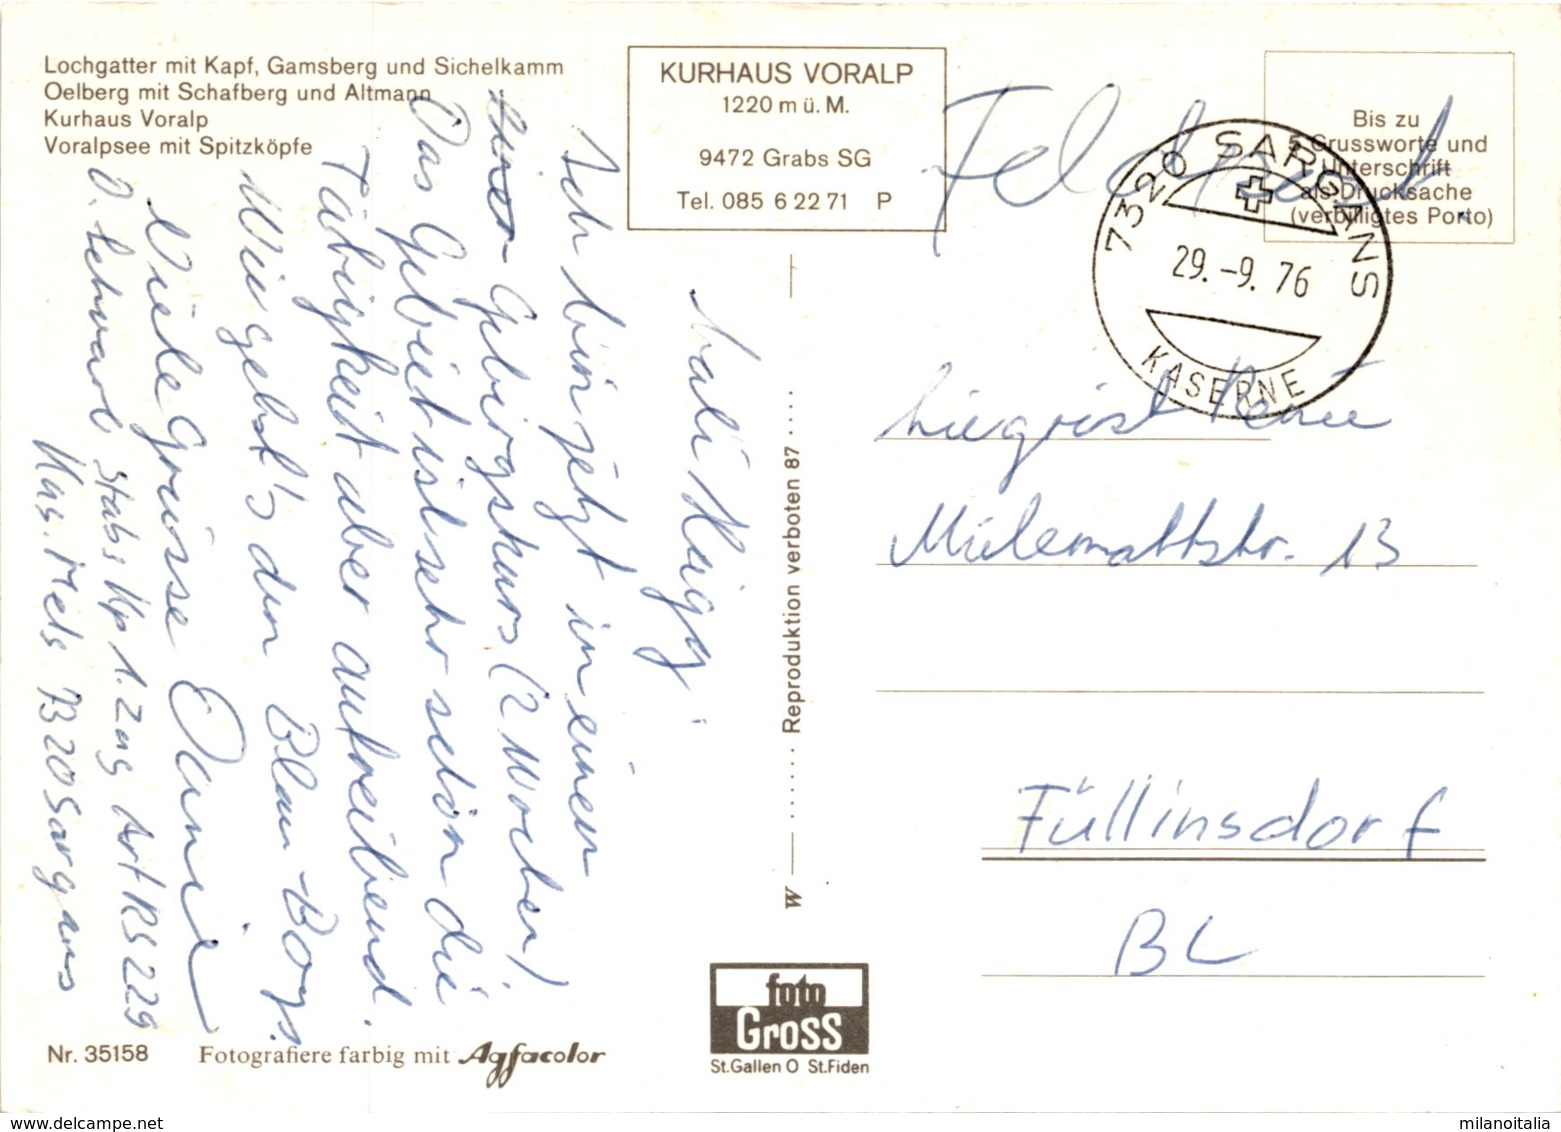 Lochgatter mit Kapf, Gamsberg und Sichelkamm
Oelberg mit Schafberg und Altmann
Kurhaus Voralp
Voralpsee mit Spitzköpfe
KURHAUS VORALP
1220 m ü. M.
9472 Grabs SG
Tel. 085 6 22 71 P
Bis zu
5 Grussworte und
Unterschrift
als Drucksache
(verbilligtes Porto)
Feldpost
7320 SARGANS
29.-9. 76
KASERNE
Sali
Ich bin jetzt in einen
Gebirgskurs (2 Wochen)
Das Gebeit ist sehr schön die
Tätigkeit aber aufreibend.
Wie geht's den Blau-Boys.
Viele Grüsse
D. Stabs Kp 1. Zug Art RS 229
Kas. Mels 7320 Sargans
Siegrist René
Mülemattstr. 13
Füllinsdorf
BL
Reproduktion verboten 87
W
foto
Gross
St.Gallen O St.Fiden
Nr. 35158 Fotografiere farbig mit Agfacolor
www.delcampe.net
milanoitalia